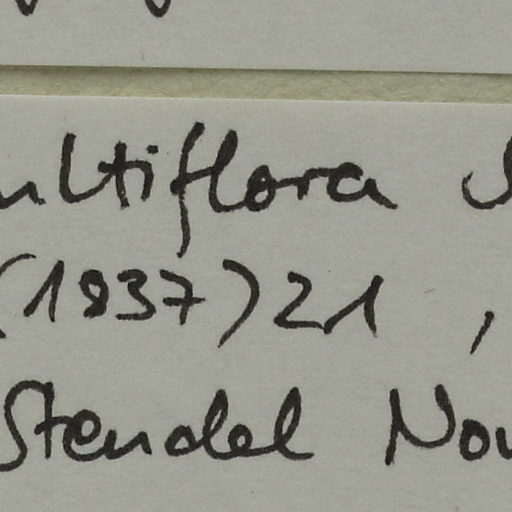 ultiflora
(1837) 21,
Steudel Nov